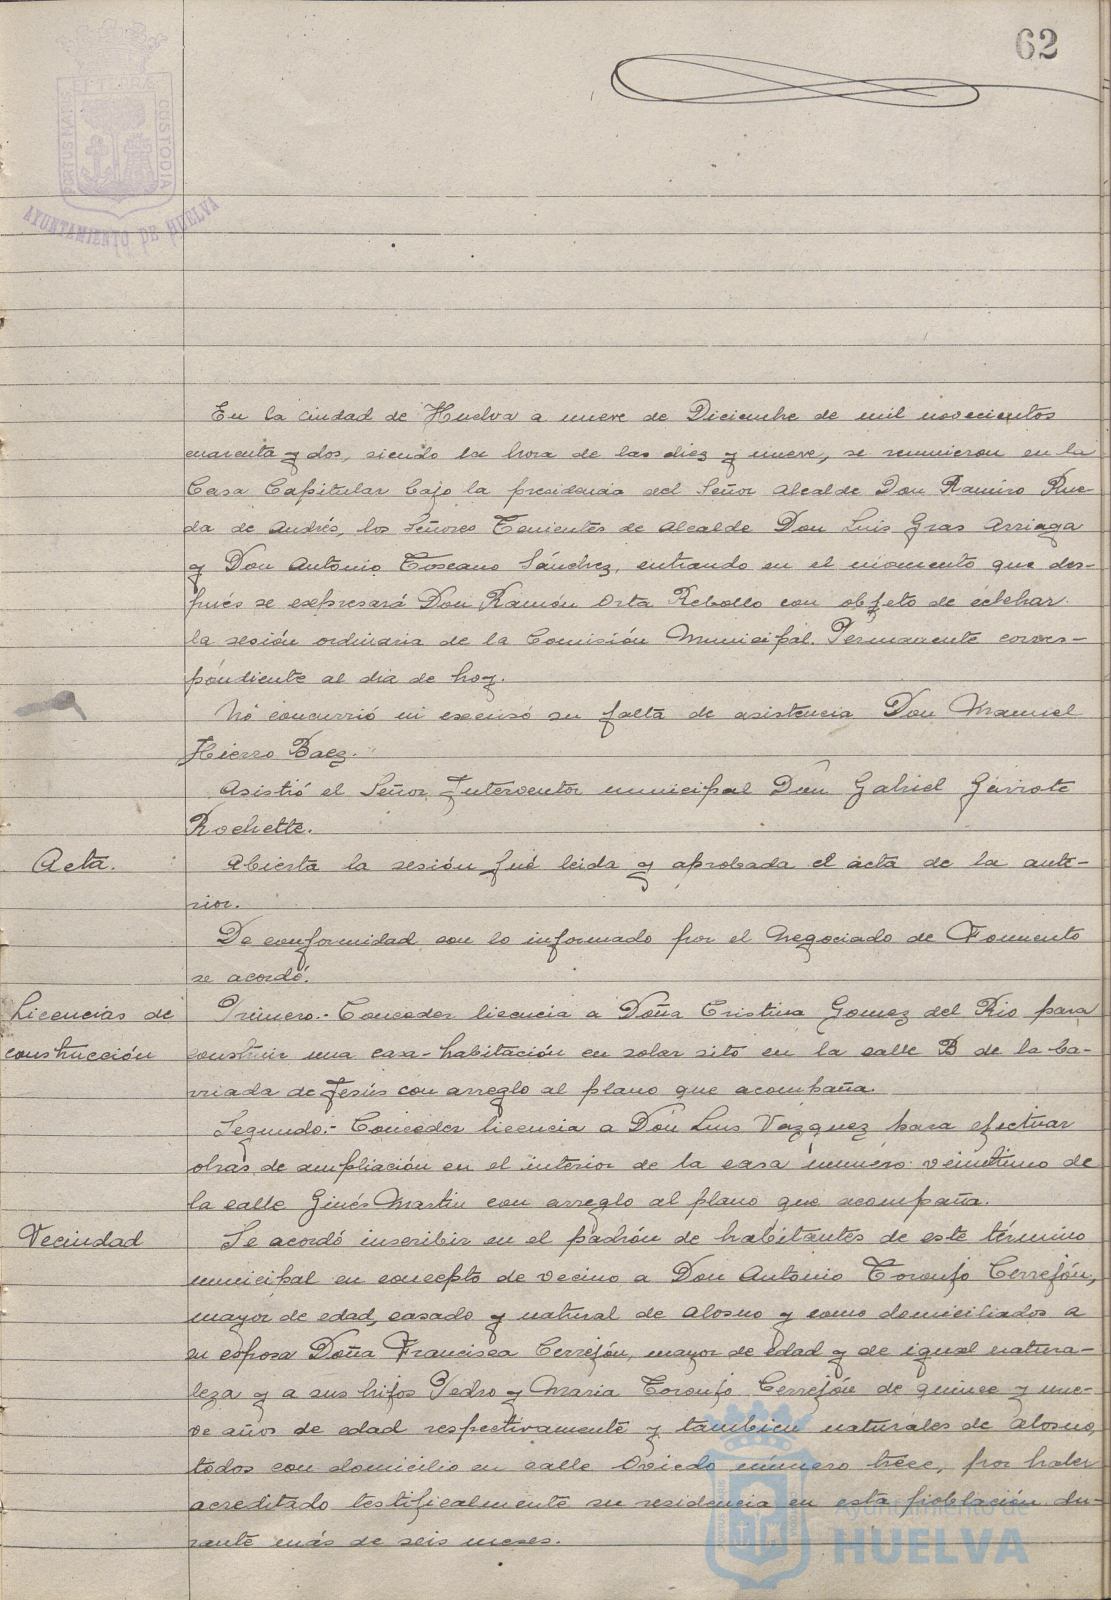 62
PORTUS MARIS ET TERRAE CUSTODIA
AYUNTAMIENTO DE HUELVA
En la ciudad de Huelva a nueve de Diciembre de mil novecientos
cuarenta y dos, siendo la hora de las diez y nueve, se reunieron en la
Casa Capitular bajo la presidencia del Señor Alcalde Don Ramiro Rue-
da de Andrés, los Señores Tenientes de Alcalde Don Luis Gras Arriaga
y Don Antonio Toscano Sánchez, entrando en el momento que des-
pués se expresará Don Ramón Orta Rebollo con objeto de celebrar
la sesión ordinaria de la Comisión Municipal Permanente corres-
pondiente al dia de hoy.
No concurrió ni excusó su falta de asistencia Don Manuel
Hierro Baez.
Asistió el Señor Interventor municipal Don Gabriel Gavrote
Rochette.
Acta.
Abierta la sesión fué leida y aprobada el acta de la ante-
rior.
De conformidad con lo informado por el Negociado de Fomento
se acordó:
Licencias de
construcción
Primero.- Conceder licencia a Doña Cristina Gomez del Rio para
construir una casa-habitación en solar sito en la calle B de la ba-
rriada de Jesús con arreglo al plano que acompaña.
Segundo.- Conceder licencia a Don Luis Vazquez para efectuar
obras de ampliación en el interior de la casa número veintiuno de
la calle Ginés Martin con arreglo al plano que acompaña.
Vecindad
Se acordó inscribir en el padrón de habitantes de este término
municipal en concepto de vecino a Don Antonio Toronjo Cerrejón,
mayor de edad, casado y natural de Alosno y como domiciliados a
su esposa Doña Francisca Cerrejón, mayor de edad y de igual natura-
leza y a sus hijos Pedro y Maria Toronjo Cerrejón de quince y nue-
ve años de edad respectivamente y tambien naturales de Alosno,
todos con domicilio en calle Oviedo número trece, por haber
acreditado testificalmente su residencia en esta población du-
rante más de seis meses.
Ayuntamiento de
HUELVA